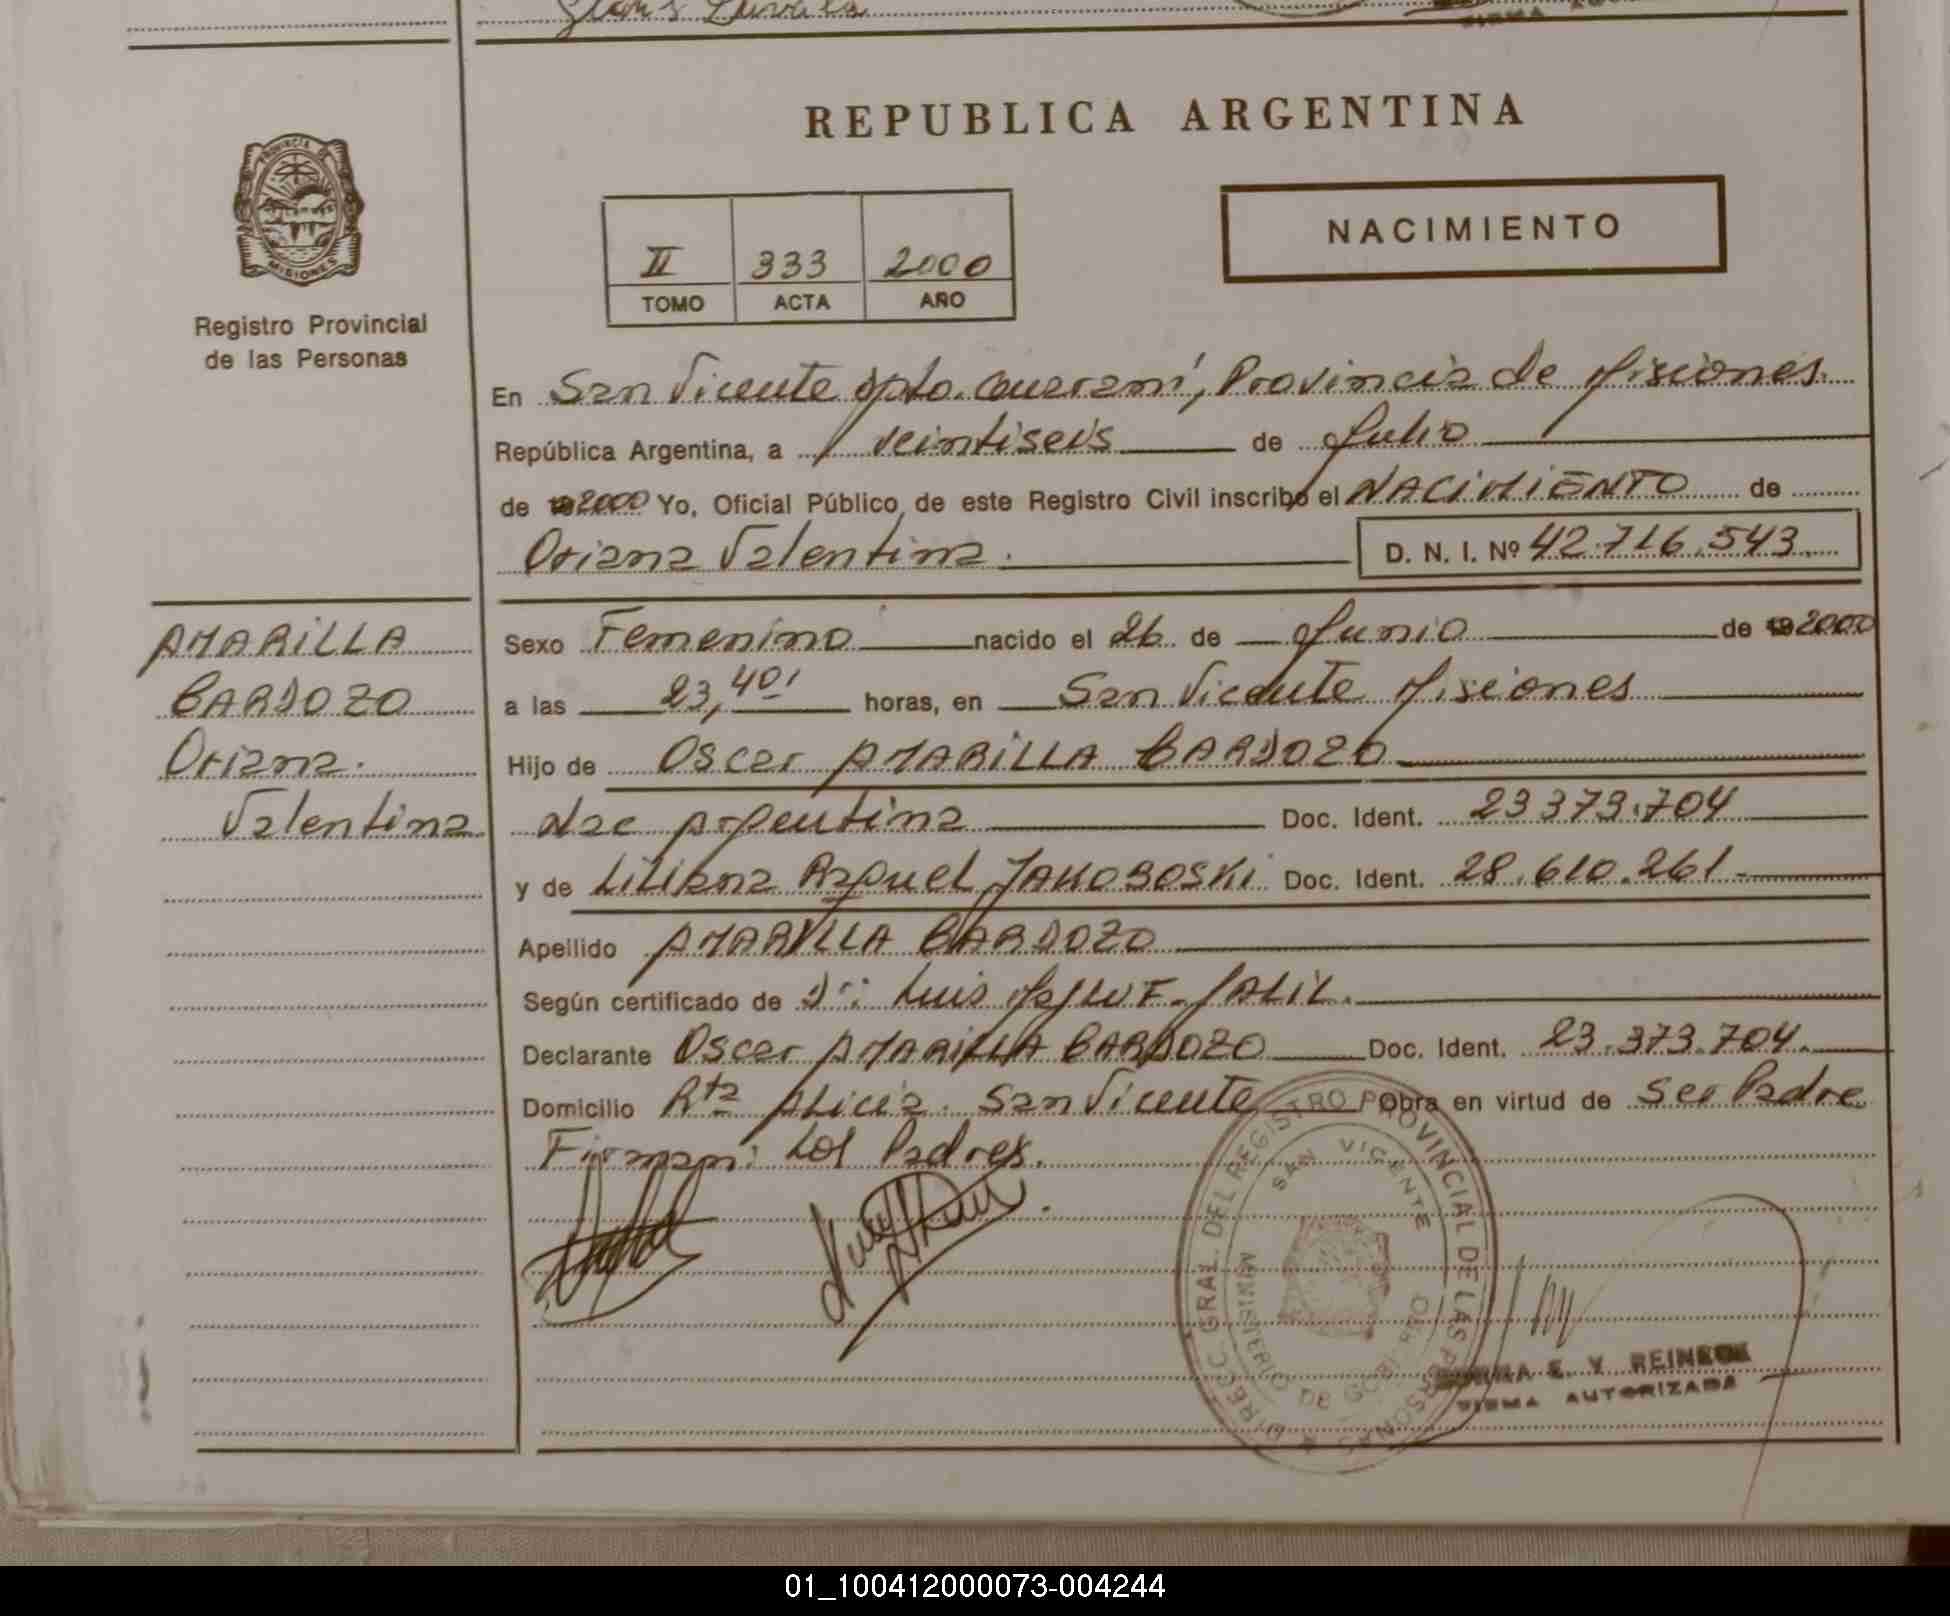 REPUBLICA ARGENTINA
PROVINCIA DE
MISIONES
Registro Provincial
de las Personas
II 333 2000
TOMO ACTA AÑO
NACIMIENTO
En San Vicente Dpto. Guaraní, Provincia de Misiones.
República Argentina, a veintiseis de Julio
de 2000 Yo, Oficial Público de este Registro Civil inscribo el NACIMIENTO de
Oriana Valentina. D. N. I. Nº 42.716.543
AMARILLA
BARDOZO
Oriana
Valentina
Sexo Femenino nacido el 26 de Junio de 2000
a las 23,40' horas, en San Vicente Misiones
Hijo de Oscar AMARILLA BARDOZO
Nac Argentina Doc. Ident. 23373.704
y de Liliana Raquel JAKOBOSKI Doc. Ident. 28.610.261
Apellido AMARILLA BARDOZO
Según certificado de Dr: Luis JALIL.
Declarante Oscar AMARILLA BARDOZO Doc. Ident. 23.373.704.
Domicilio Rta Alicia. San Vicente Obra en virtud de ser Padre
Firman: Los Padres.
DIREC. GRAL. DEL REGISTRO PROVINCIAL DE LAS PERSONAS
SAN VICENTE
MINISTERIO DE GOBIERNO
E. V. REINECK
FIRMA AUTORIZADA
01_100412000073-004244